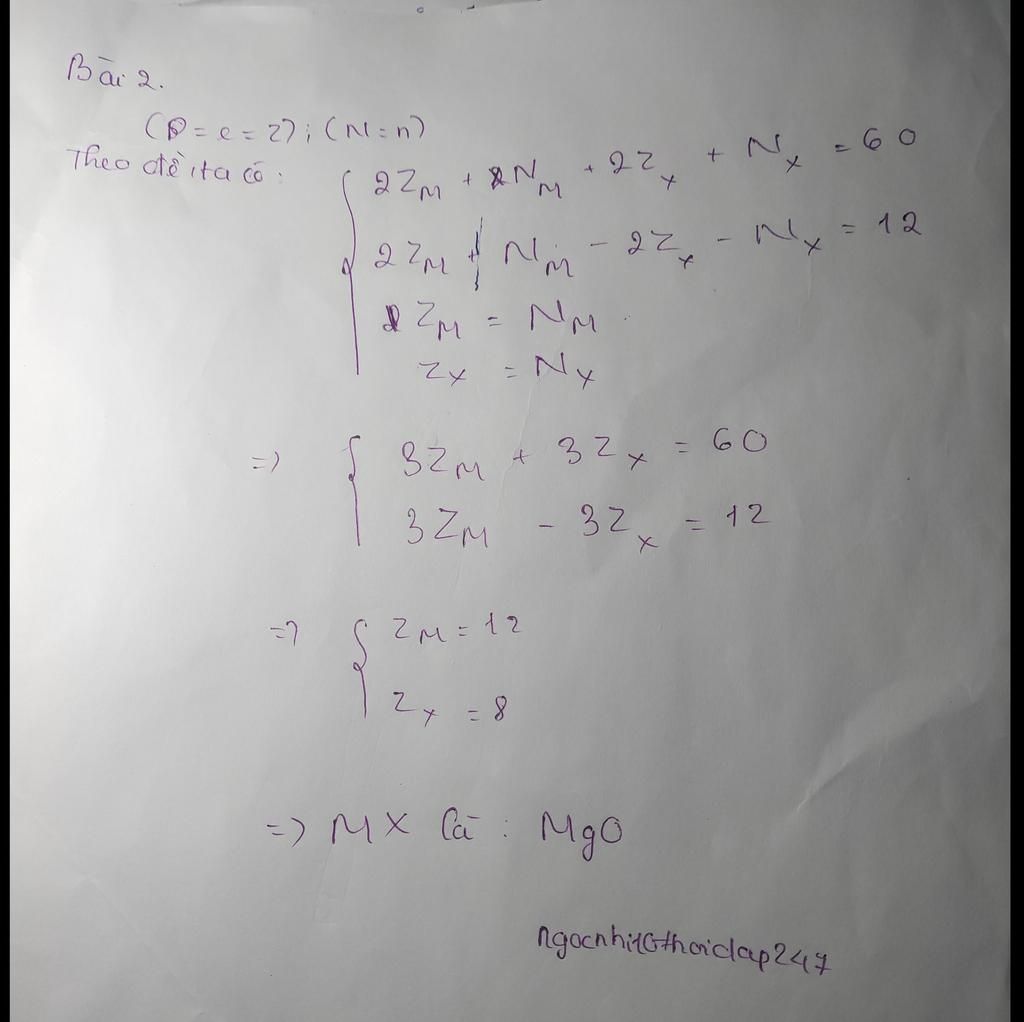 Bài 2.
(P = e = Z) ; (N = n)
Theo đề ta có :
2Z_M + N_M + 2Z_X + N_X = 60
2Z_M + N_M - 2Z_X - N_X = 12
Z_M = N_M
Z_X = N_X
=> 3Z_M + 3Z_X = 60
3Z_M - 3Z_X = 12
=> Z_M = 12
Z_X = 8
=> MX là : MgO